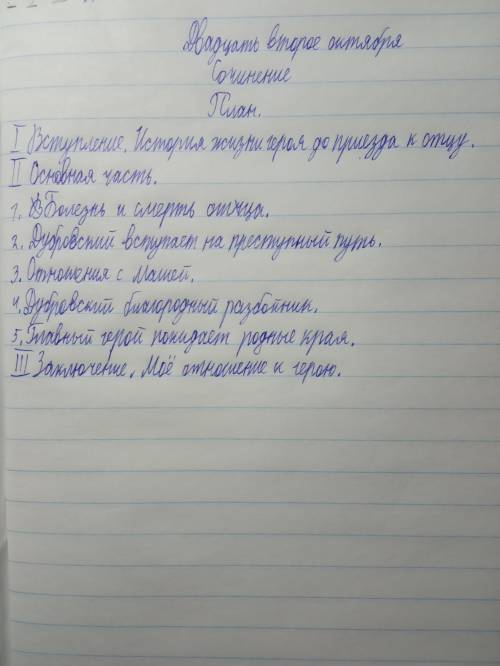 Двадцать второе октября
Сочинение
План.
I Вступление. История жизни героя до приезда к отцу.
II Основная часть.
1. Болезнь и смерть отца.
2. Дубровский вступает на преступный путь.
3. Отношения с Машей.
4. Дубровский благородный разбойник.
5. Главный герой покидает родные края.
III Заключение. Моё отношение к герою.